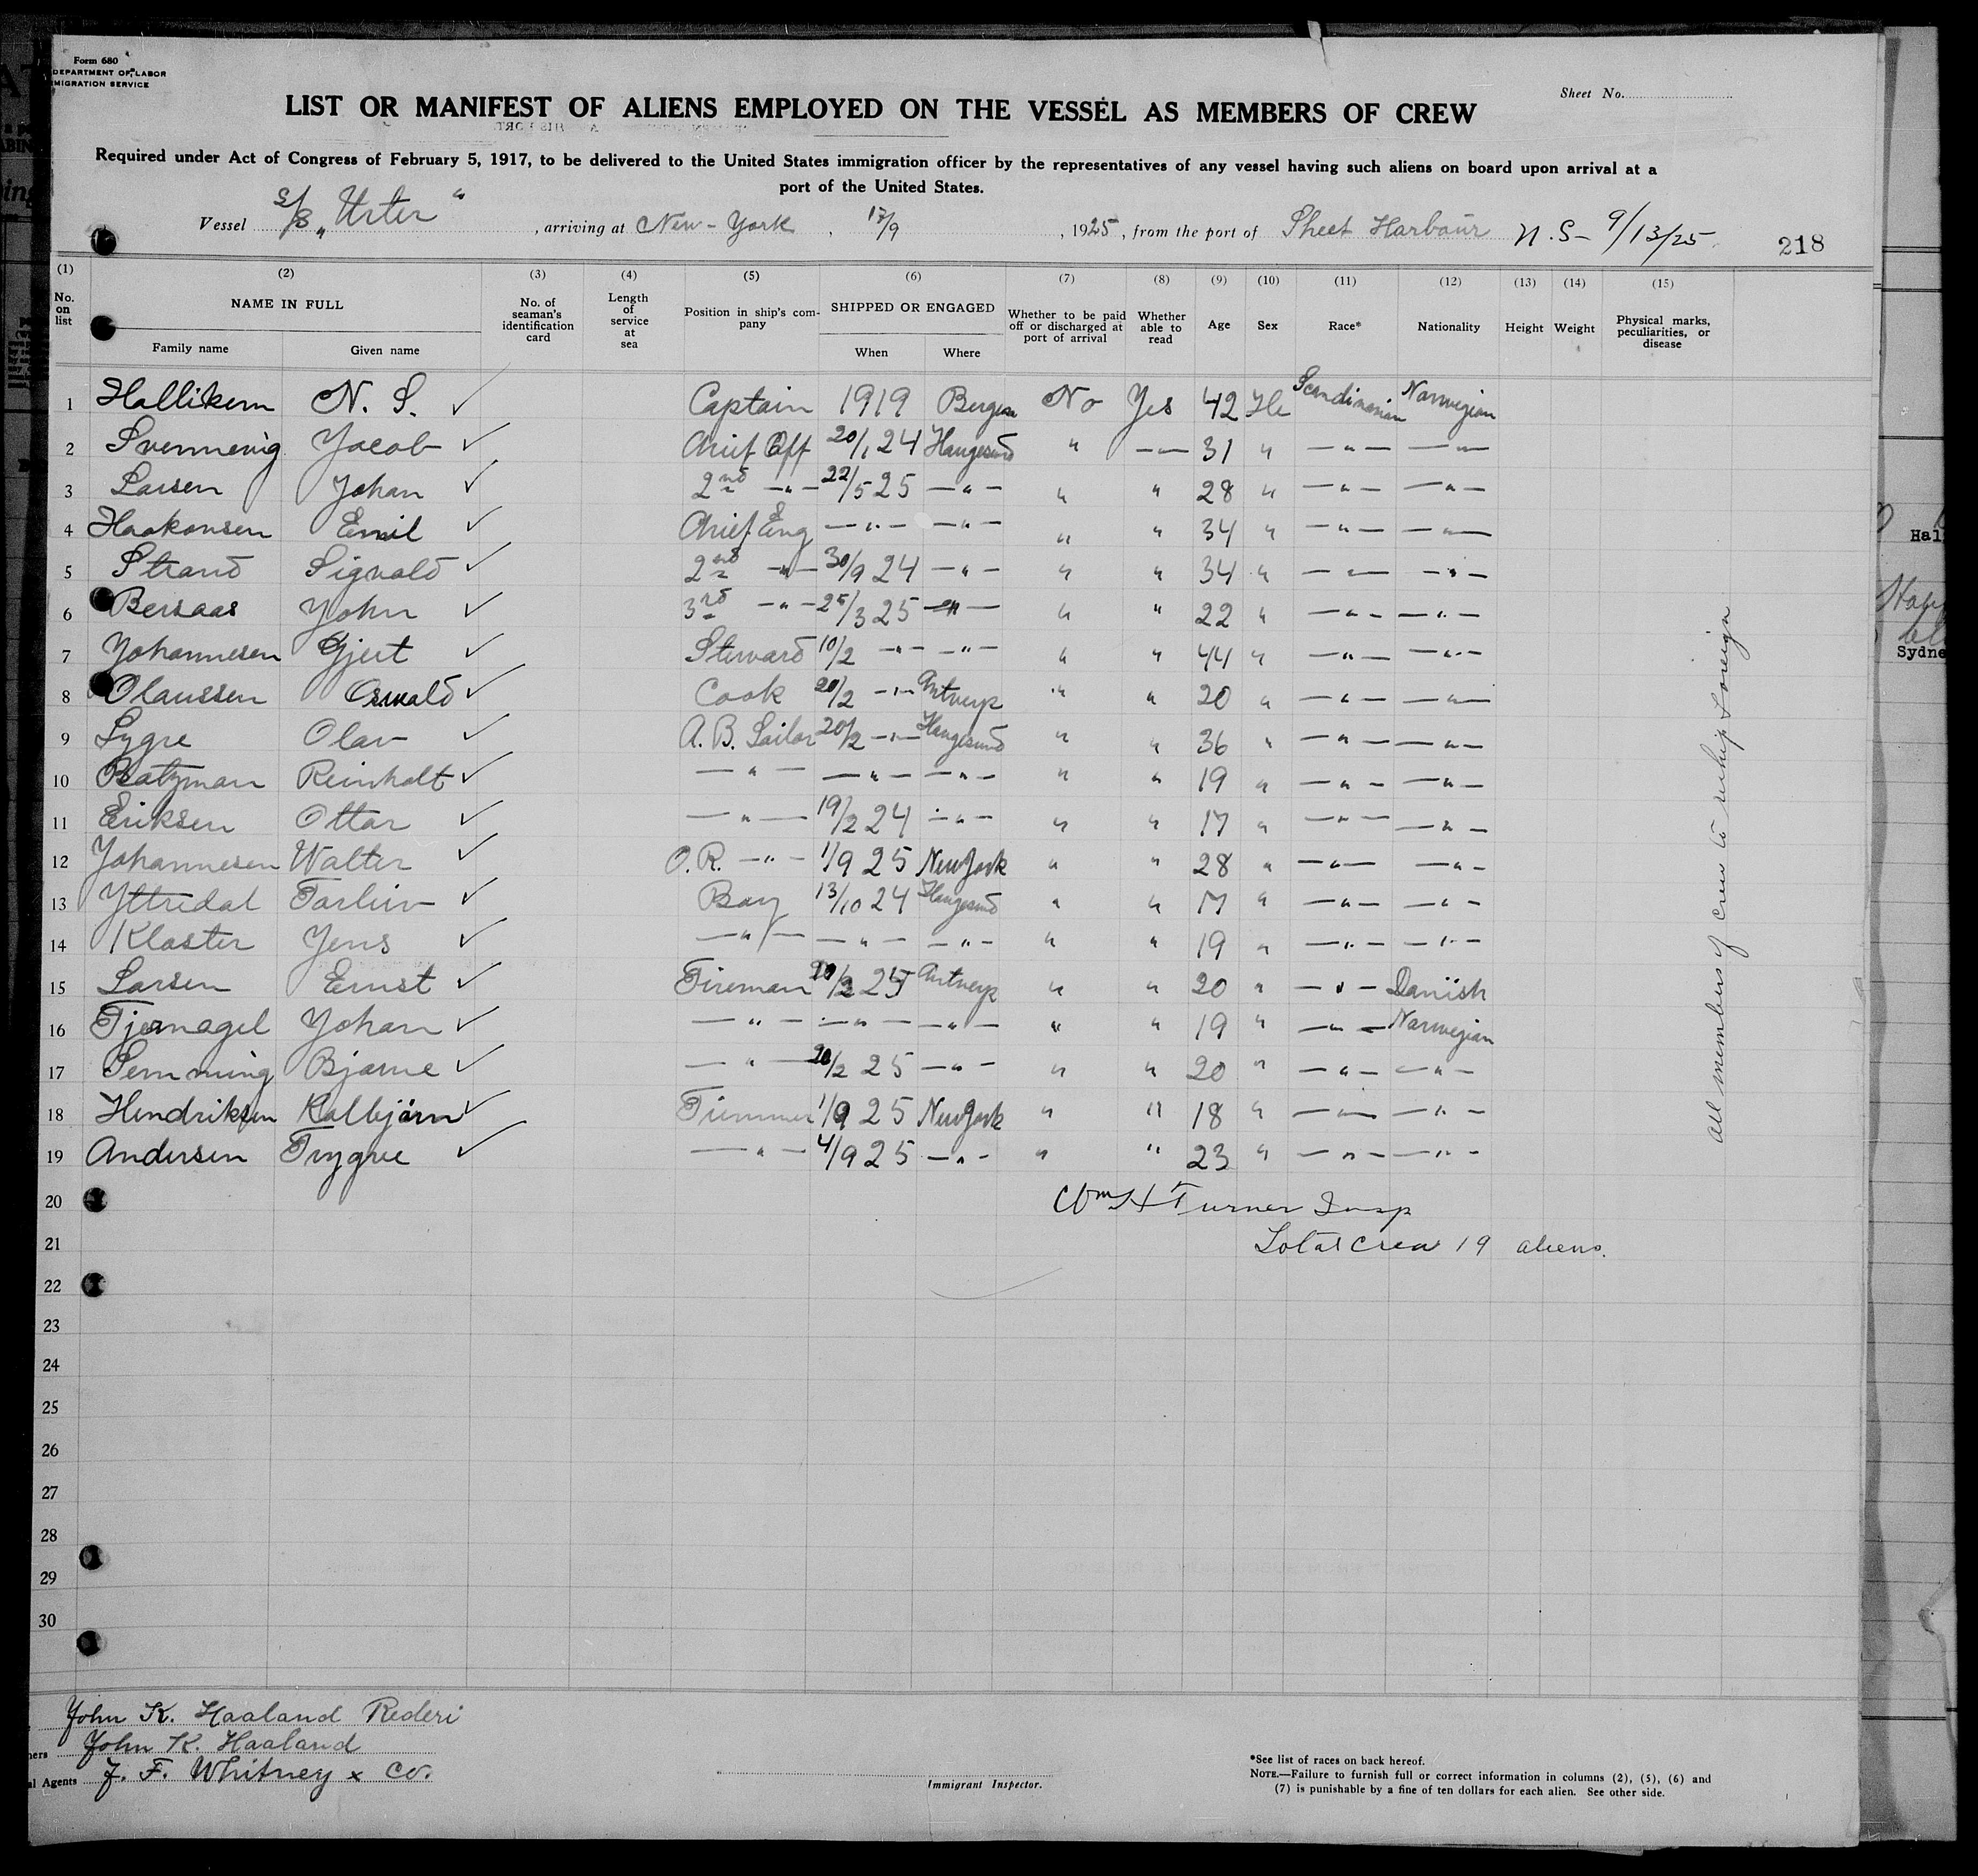 Form 680
DEPARTMENT OF LABOR
MIGRATION SERVICE
Sheet No.
LIST OR MANIFEST OF ALIENS EMPLOYED ON THE VESSEL AS MEMBERS OF CREW
Required under Act of Congress of February 5, 1917, to be delivered to the United States immigration officer by the representatives of any vessel having such aliens on board upon arrival at a
port of the United States.
Vessel S/S „Urter“, arriving at New-York, 17/9, 1925, from the port of Sheet Harbour N.S- 9/13/25
218
(1) (2) (3) (4) (5) (6) (7) (8) (9) (10) (11) (12) (13) (14) (15)
No. on list NAME IN FULL Family name Given name No. of seaman's identification card Length of service at sea Position in ship's company SHIPPED OR ENGAGED When Where Whether to be paid off or discharged at port of arrival Whether able to read Age Sex Race* Nationality Height Weight Physical marks, peculiarities, or disease
1 N. S. ✓ Captain 1919 Bergen No Yes 42 Scandinavian Norwegian
2 Svennevig Jacob ✓ Chief Off 20/1 24 Haugesund " —"— 31 " —"— —"—
3 Larsen Johan ✓ 2nd —"— 22/5 25 —"— " " 28 " —"— —"—
4 Haakonsen Emil ✓ Chief Eng —"— —"— " " 34 " —"— —"—
5 Strand Sigvald ✓ 2nd —"— 30/9 24 —"— " " 34 " —"— —"—
6 Bersaas John ✓ 3rd —"— 25/3 25 —"— " " 22 " —"— —"—
7 Johannesen Gjert ✓ Steward 10/2 —"— —"— " " 44 " —"— —"—
8 Olaussen Oswald ✓ Cook 20/2 —"— Antverp " " 20 " —"— —"—
9 Lygre Olav ✓ A.B. Sailor 20/2 —"— Haugesund " " 36 " —"— —"—
10 Batzman Reinholt ✓ —"— —"— —"— " " 19 " —"— —"—
11 Eriksen Ottar ✓ —"— 19/2 24 —"— " " 17 " —"— —"—
12 Johannesen Walter ✓ O.R. —"— 1/9 25 New York " " 28 " —"— —"—
13 Yttredal Torleiv ✓ Boy 13/10 24 Haugesund " " 17 " —"— —"—
14 Kloster Jens ✓ —"— —"— —"— " " 19 " —"— —"—
15 Larsen Ernst ✓ Fireman 20/2 25 Antverp " " 20 " —"— Danish
16 Tjernagel Johan ✓ —"— —"— —"— " " 19 " —"— Norwegian
17 Semming Bjarne ✓ —"— 20/2 25 —"— " " 20 " —"— —"—
18 Hendriksen Kolbjørn ✓ Trimmer 1/9 25 New York " " 18 " —"— —"—
19 Andersen Trygve ✓ —"— 4/9 25 —"— " " 23 " —"— —"—
20 Wm H Turner Insp
21 Total Crew 19 aliens.
22
23
24
25
26
27
28
29
30
all members of crew to reship foreign
John K. Haaland Rederi
ners John K. Haaland
al Agents J. F. Whitney & Co.
Immigrant Inspector.
*See list of races on back hereof.
NOTE.—Failure to furnish full or correct information in columns (2), (5), (6) and
(7) is punishable by a fine of ten dollars for each alien. See other side.
Hal
Sydne